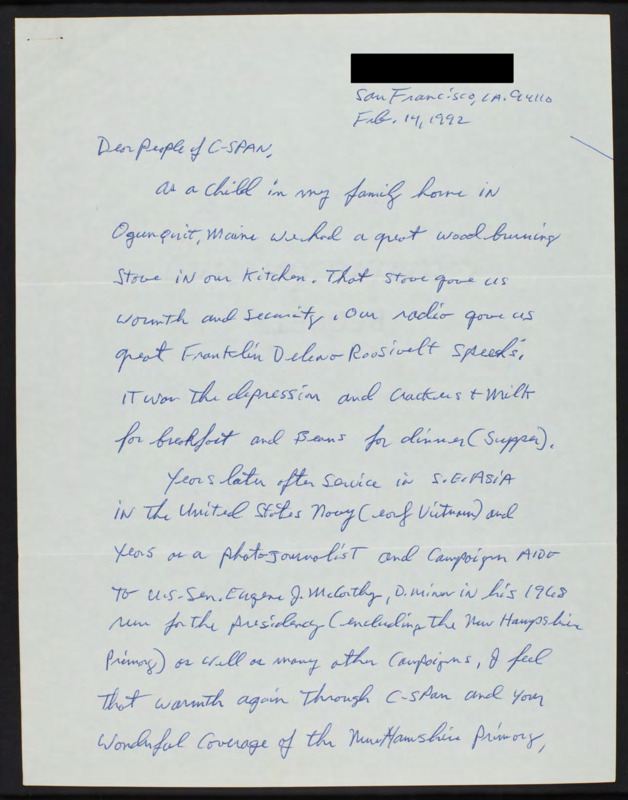 San Francisco, CA. 94110
Feb. 14, 1992
Dear People of C-SPAN,
As a child in my family home in
Ogunquit, Maine we had a great wood burning
stove in our kitchen. That stove gave us
warmth and security. Our radio gave us
great Franklin Deleno Roosivelt speechs.
IT was the depression and crackers + milk
for breakfast and Beans for dinner (supper).
Years later after service in S.E. ASIA
in the United States Navy (early Vietnam) and
years as a photojournalist and Campaign AIDE
To U.S. Sen. Eugene J. McCarthy, D. Minn in his 1968
run for the presidency (including the New Hampshire
Primary) as well as many other Campaigns, I feel
that warmth again Through C-SPAN and your
Wonderful Coverage of the New Hamshire Primary,